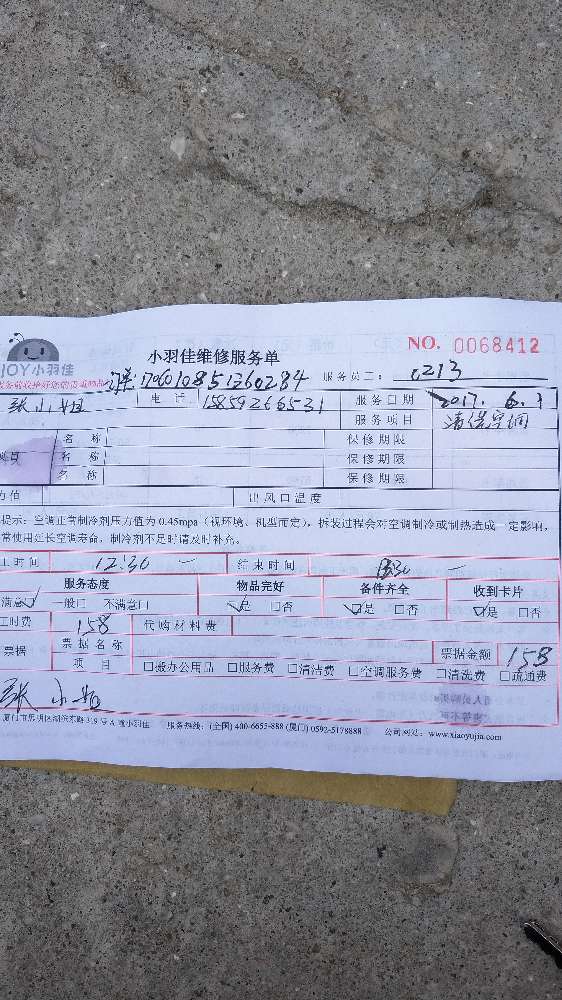 JOY小羽佳
小羽佳维修服务单
NO. 0068412
订单:1706010851260284 服务员工: 0213
张小姐 电话 15859266531 服务日期 2017.6.1
服务项目 清洗空调
名称 保修期限
名称 保修期限
名称 保修期限
力值 出风口温度
提示:空调正常制冷剂压力值为0.45mpa(视环境、机型而定),拆装过程会对空调制冷或制热造成一定影响,
常使用延长空调寿命,制冷剂不足时请及时补充。
工时间 12:30 结束时间
服务态度 物品完好 备件齐全 收到卡片
满意☑ 一般□ 不满意□ ☑是 □否 ☑是 □否 ☑是 □否
工时费 158 代购材料费
票据 票据名称 票据金额 158
项目 □搬办公用品 □服务费 □清洁费 □空调服务费 □清洗费 □疏通费
张小姐
厦门市思明区湖滨东路319号A 小羽佳 服务热线:(全国) 400-6655-888 (厦门) 0592-5178888 公司网站:www.xiaoyujia.com